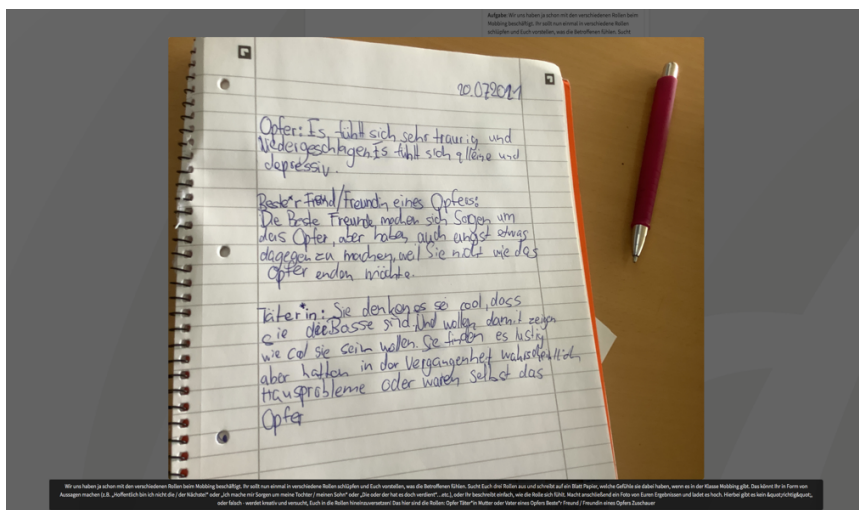 Aufgabe: Wir uns haben ja schon mit den verschiedenen Rollen beim
Mobbing beschäftigt. Ihr sollt nun einmal in verschiedene Rollen
schlüpfen und Euch vorstellen, was die Betroffenen fühlen. Sucht
20.072021
Opfer: Es fühlt sich sehr traurig und
niedergeschlagen. Es fühlt sich alleine und
depressiv.
Beste*r Freund/Freundin eines Opfers:
Die Beste Freunde machen sich Sorgen um
das Opfer, aber haben auch angst etwas
dagegen zu machen, weil Sie nicht wie das
Opfer enden möchte.
Täter*in: Sie denken es sei cool, dass
sie die Bosse sind. Und wollen damit zeigen
wie col sie sein wollen. Sie finden es lustig
aber hatten in der Vergangenheit wahrscheintlich
Hausprobleme oder waren selbst das
Opfer
Wir uns haben ja schon mit den verschiedenen Rollen beim Mobbing beschäftigt. Ihr sollt nun einmal in verschiedene Rollen schlüpfen und Euch vorstellen, was die Betroffenen fühlen. Sucht Euch drei Rollen aus und schreibt auf ein Blatt Papier, welche Gefühle sie dabei haben, wenn es in der Klasse Mobbing gibt. Das könnt Ihr in Form von
Aussagen machen (z.B. „Hoffentlich bin ich nicht die / der Nächste!" oder „Ich mache mir Sorgen um meine Tochter / meinen Sohn" oder „Die oder der hat es doch verdient"...etc.), oder Ihr beschreibt einfach, wie die Rolle sich fühlt. Macht anschließend ein Foto von Euren Ergebnissen und ladet es hoch. Hierbei gibt es kein &quot;richtig&quot;,
oder falsch - werdet kreativ und versucht, Euch in die Rollen hineinzuversetzen! Das hier sind die Rollen: Opfer Täter*in Mutter oder Vater eines Opfers Beste*r Freund / Freundin eines Opfers Zuschauer